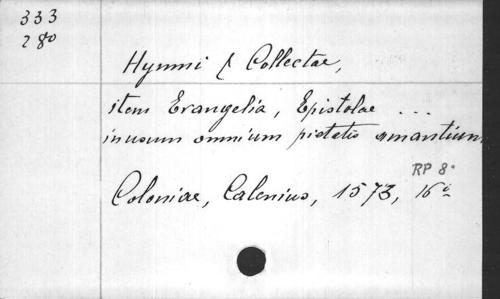 333
280
Hymni & Collectae,
item Evangelia, Epistolae ...
in usum omnium pietatis amantium
RP 8°
Coloniae, Calenius, 1573, 16°